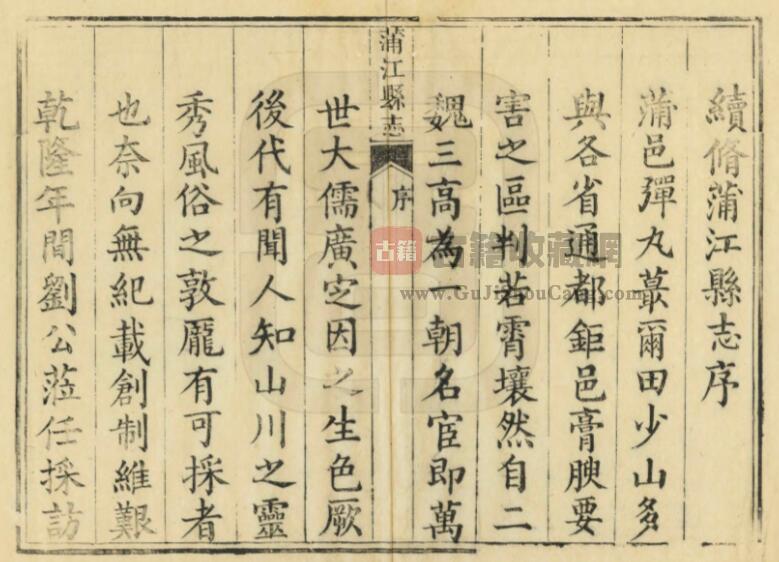 續脩蒲江縣志序
蒲邑彈丸蕞爾田少山多
與各省通都鉅邑膏腴要
害之區判若霄壤然自二
魏三高為一朝名宦即萬
蒲江縣志
序
世大儒廣定因之生色厥
後代有聞人知山川之靈
秀風俗之敦龐有可採者
也奈向無紀載創制維艱
乾隆年間劉公蒞任採訪
古籍
古籍收藏網
www.GuJiShouCang.com